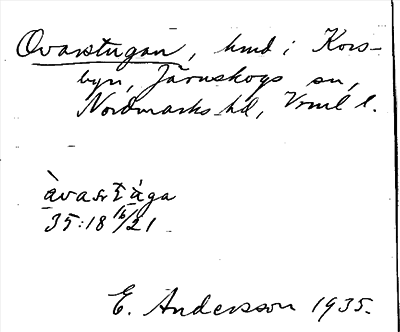 Ovarstugan, hmd i Kors-
byn, Järnskogs sn,
Nordmarks hd, Vrml l.
àvastàga
35:18 16/21
E. Andersson 1935.